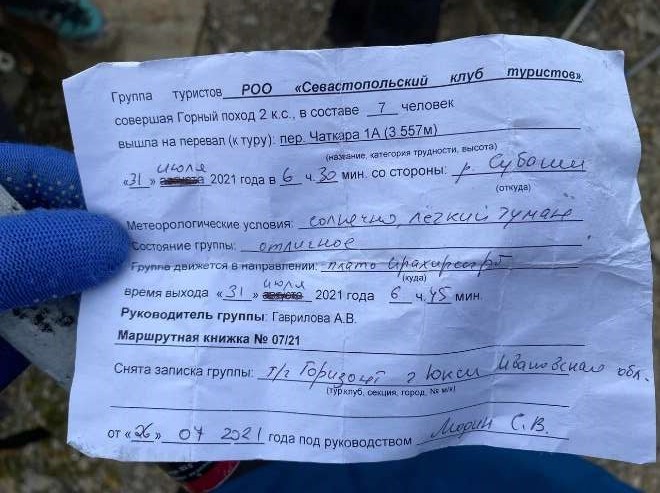 Группа туристов РОО «Севастопольский клуб туристов»,
совершая Горный поход 2 к.с., в составе 7 человек
вышла на перевал (к туру): пер. Чаткара 1А (3 557м)
(название, категория трудности, высота)
июля
«31» августа 2021 года в 6 ч. 30 мин. со стороны: р. Субаши
(откуда)
Метеорологические условия: солнечно, лёгкий туман
Состояние группы: отличное
Группа движется в направлении: плато
(куда)
июля
время выхода «31» августа 2021 года 6 ч. 45 мин.
Руководитель группы: Гаврилова А.В.
Маршрутная книжка № 07/21
Снята записка группы: т/г Горизонт г Южи Ивановская обл.
(турклуб, секция, город, № м/к)
от «26» 07 2021 года под руководством С.В.